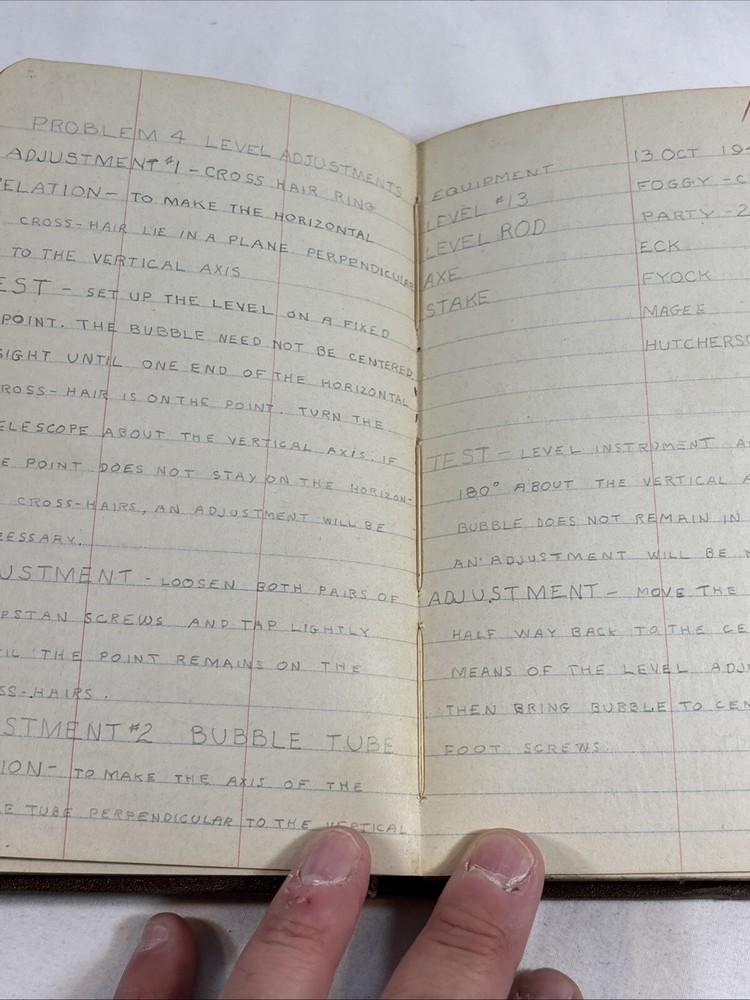 PROBLEM 4 LEVEL ADJUSTMENTS
ADJUSTMENT #1 - CROSS HAIR RING
ELATION - TO MAKE THE HORIZONTAL
CROSS-HAIR LIE IN A PLANE PERPENDICULAR
TO THE VERTICAL AXIS
EST - SET UP THE LEVEL ON A FIXED
POINT. THE BUBBLE NEED NOT BE CENTERED.
SIGHT UNTIL ONE END OF THE HORIZONTAL
ROSS-HAIR IS ON THE POINT. TURN THE
ELESCOPE ABOUT THE VERTICAL AXIS. IF
E POINT DOES NOT STAY ON THE HORIZON-
CROSS-HAIRS, AN ADJUSTMENT WILL BE
ESSARY.
USTMENT - LOOSEN BOTH PAIRS OF
PSTAN SCREWS AND TAP LIGHTLY
IL THE POINT REMAINS ON THE
SS-HAIRS.
STMENT #2 BUBBLE TUBE
ION - TO MAKE THE AXIS OF THE
E TUBE PERPENDICULAR TO THE VERTICAL
EQUIPMENT
LEVEL #13
LEVEL ROD
AXE
STAKE
13 OCT 19
FOGGY - C
PARTY - 2
ECK
FYOCK
MAGEE
HUTCHERSO
TEST - LEVEL INSTRUMENT A
180° ABOUT THE VERTICAL A
BUBBLE DOES NOT REMAIN IN
AN ADJUSTMENT WILL BE N
ADJUSTMENT - MOVE THE
HALF WAY BACK TO THE CE
MEANS OF THE LEVEL ADJ
THEN BRING BUBBLE TO CEN
FOOT SCREWS.